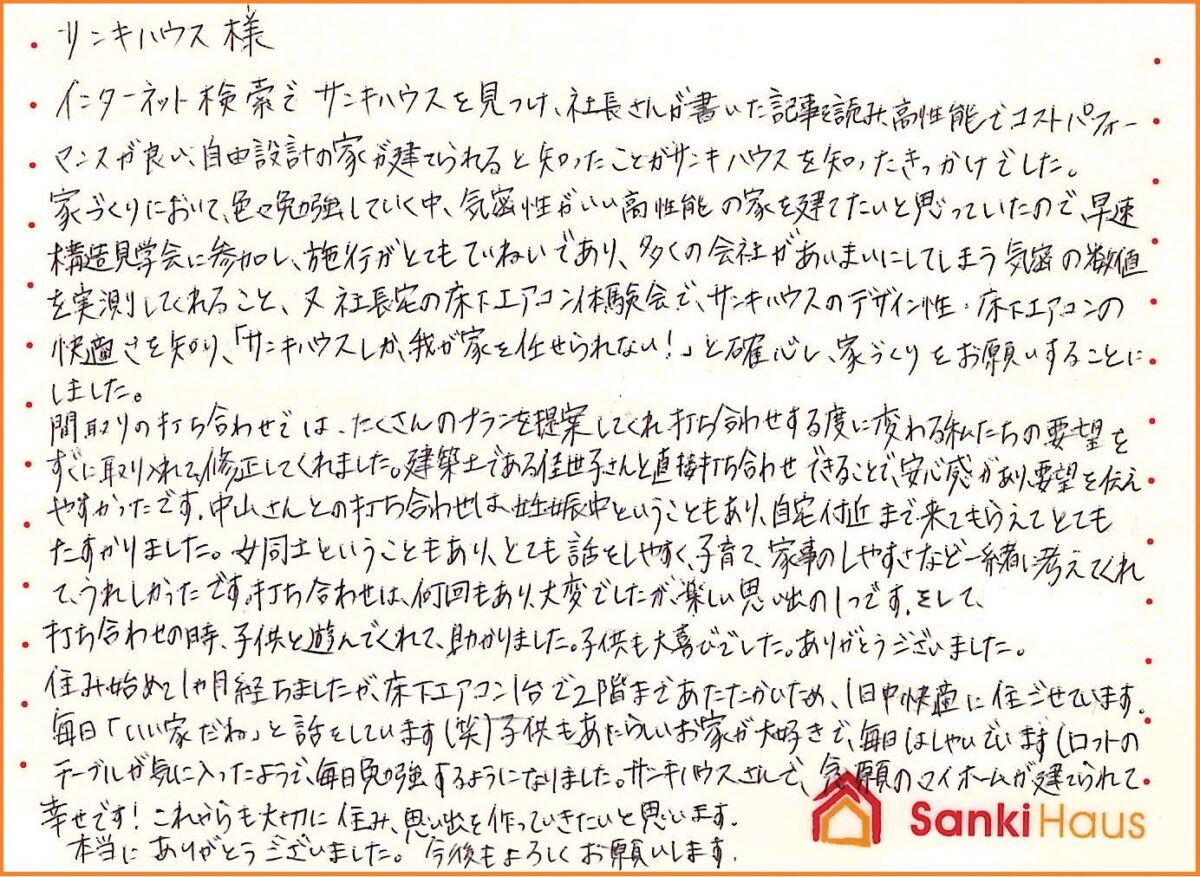 サンキハウス 様
インターネット検索で サンキハウスを見つけ、社長さんが書いた記事を読み、高性能でコストパフォー
マンスが良い、自由設計の家が建てられると知ったことがサンキハウスを知ったきっかけでした。
家づくりにおいて、色々勉強していく中、気密性がいい高性能の家を建てたいと思っていたので、早速
構造見学会に参加し、施行がとてもていねいであり、多くの会社があいまいにしてしまう気密の数値
を実測してくれること、又 社長宅の床下エアコン体験会で、サンキハウスのデザイン性・床下エアコンの
快適さを知り、「サンキハウスしか、我が家を任せられない!」と確心し、家づくりをお願いすることに
しました。
間取りの打ち合わせでは、たくさんのプランを提案してくれ打ち合わせする度に変わる私たちの要望を
すぐに取り入れて、修正してくれました。建築士である佳世子さんと直接打ち合わせできることで、安心感があり、要望を伝え
やすかったです。中山さんとの打ち合わせは、妊娠中ということもあり、自宅付近まで来てもらえてとても
たすかりました。女同士ということもあり、とても話をしやすく、子育て、家事のしやすさなど一緒に考えてくれ
て、うれしかったです。打ち合わせは、何回もあり、大変でしたが、楽しい思い出の1つです。そして、
打ち合わせの時、子供と遊んでくれて、助かりました。子供も大喜びでした。ありがとうございました。
住み始めて1ヵ月経ちましたが、床下エアコン1台で2階まであたたかいため、1日中快適に住ごせています。
毎日「いい家だね」と話をしています(笑)子供もあたらしいお家が大好きで、毎日はしゃいでいます(ロフトの
テーブルが気に入ったようで、毎日勉強するようになりました。サンキハウスさんで、念願のマイホームが建てられて
幸せです!これからも大切に住み、思い出を作っていきたいと思います。
本当にありがとうございました。今後もよろしくお願いします。
Sanki Haus